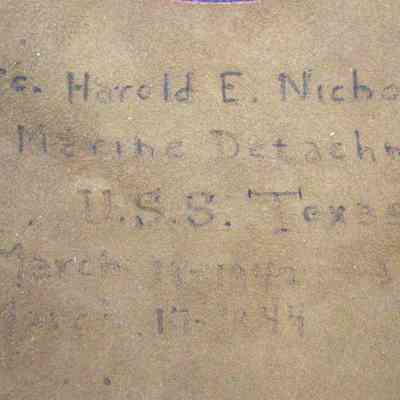 fc. Harold E. Nicho
Marine Detachm
U.S.S. Texas
March 19-1942
March 17-1944